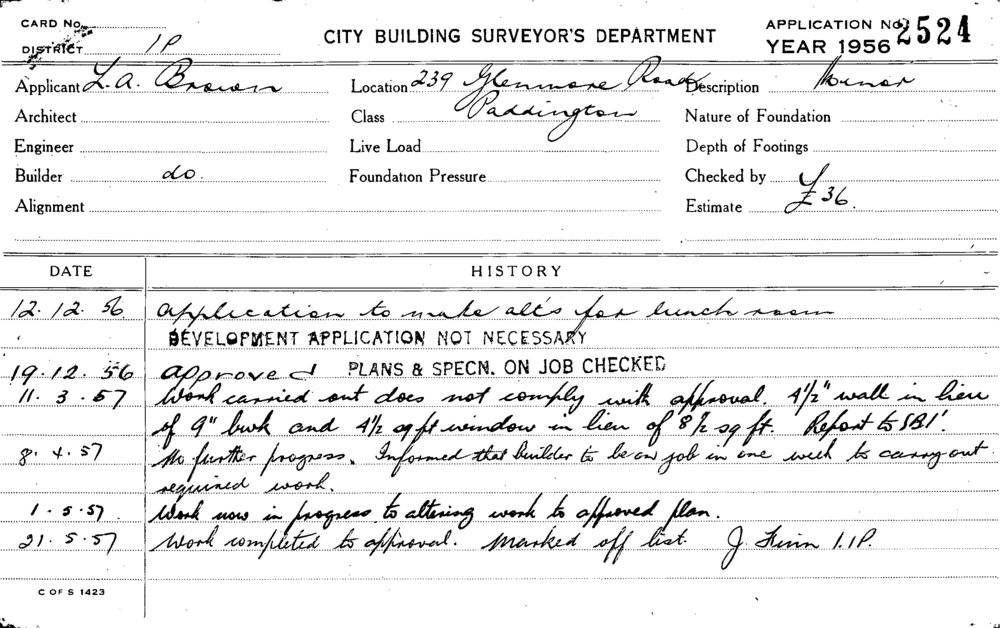 CARD No.
DISTRICT 1P
CITY BUILDING SURVEYOR'S DEPARTMENT
APPLICATION No. 2524
YEAR 1956
Applicant L.A. Brown
Location 239 Glenmore Road
Description Minor
Architect
Class Paddington
Nature of Foundation
Engineer
Live Load
Depth of Footings
Builder do.
Foundation Pressure
Checked by
Alignment
Estimate £36.
DATE HISTORY
12.12.56 Application to make alt's for lunch room
DEVELOPMENT APPLICATION NOT NECESSARY
19.12.56 Approved PLANS & SPECN. ON JOB CHECKED
11.3.57 Work carried out does not comply with approval. 4½" wall in lieu
of 9" bwk and 4½ sq ft window in lieu of 8½ sq ft. Report to SBI.
8.4.57 No further progress. Informed that builder to be on job in one week to carry out
required work.
1.5.57 Work now in progress to altering work to approved plan.
21.5.57 Work completed to approval. Marked off list. J. Finn 1.1P.
C OF S 1423